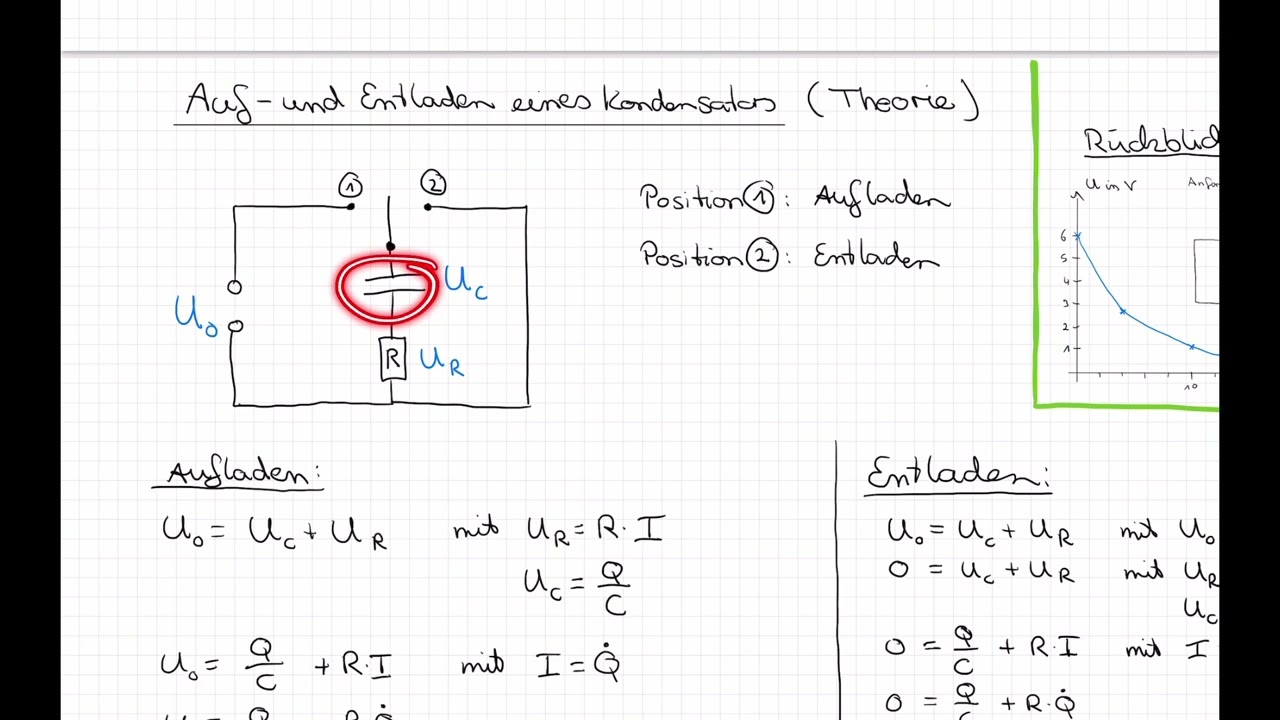 Auf- und Entladen eines Kondensators (Theorie)
① ②
U₀
U_C
R U_R
Position ①: Aufladen
Position ②: Entladen
Rückblic
U in V
6
5
4
3
2
1
10
Aufladen:
U₀ = U_C + U_R mit U_R = R · I
U_C = Q/C
U₀ = Q/C + R · I mit I = Q̇
Entladen:
U₀ = U_C + U_R mit U₀
0 = U_C + U_R mit U_R
U_C
0 = Q/C + R · I mit I
0 = Q/C + R · Q̇